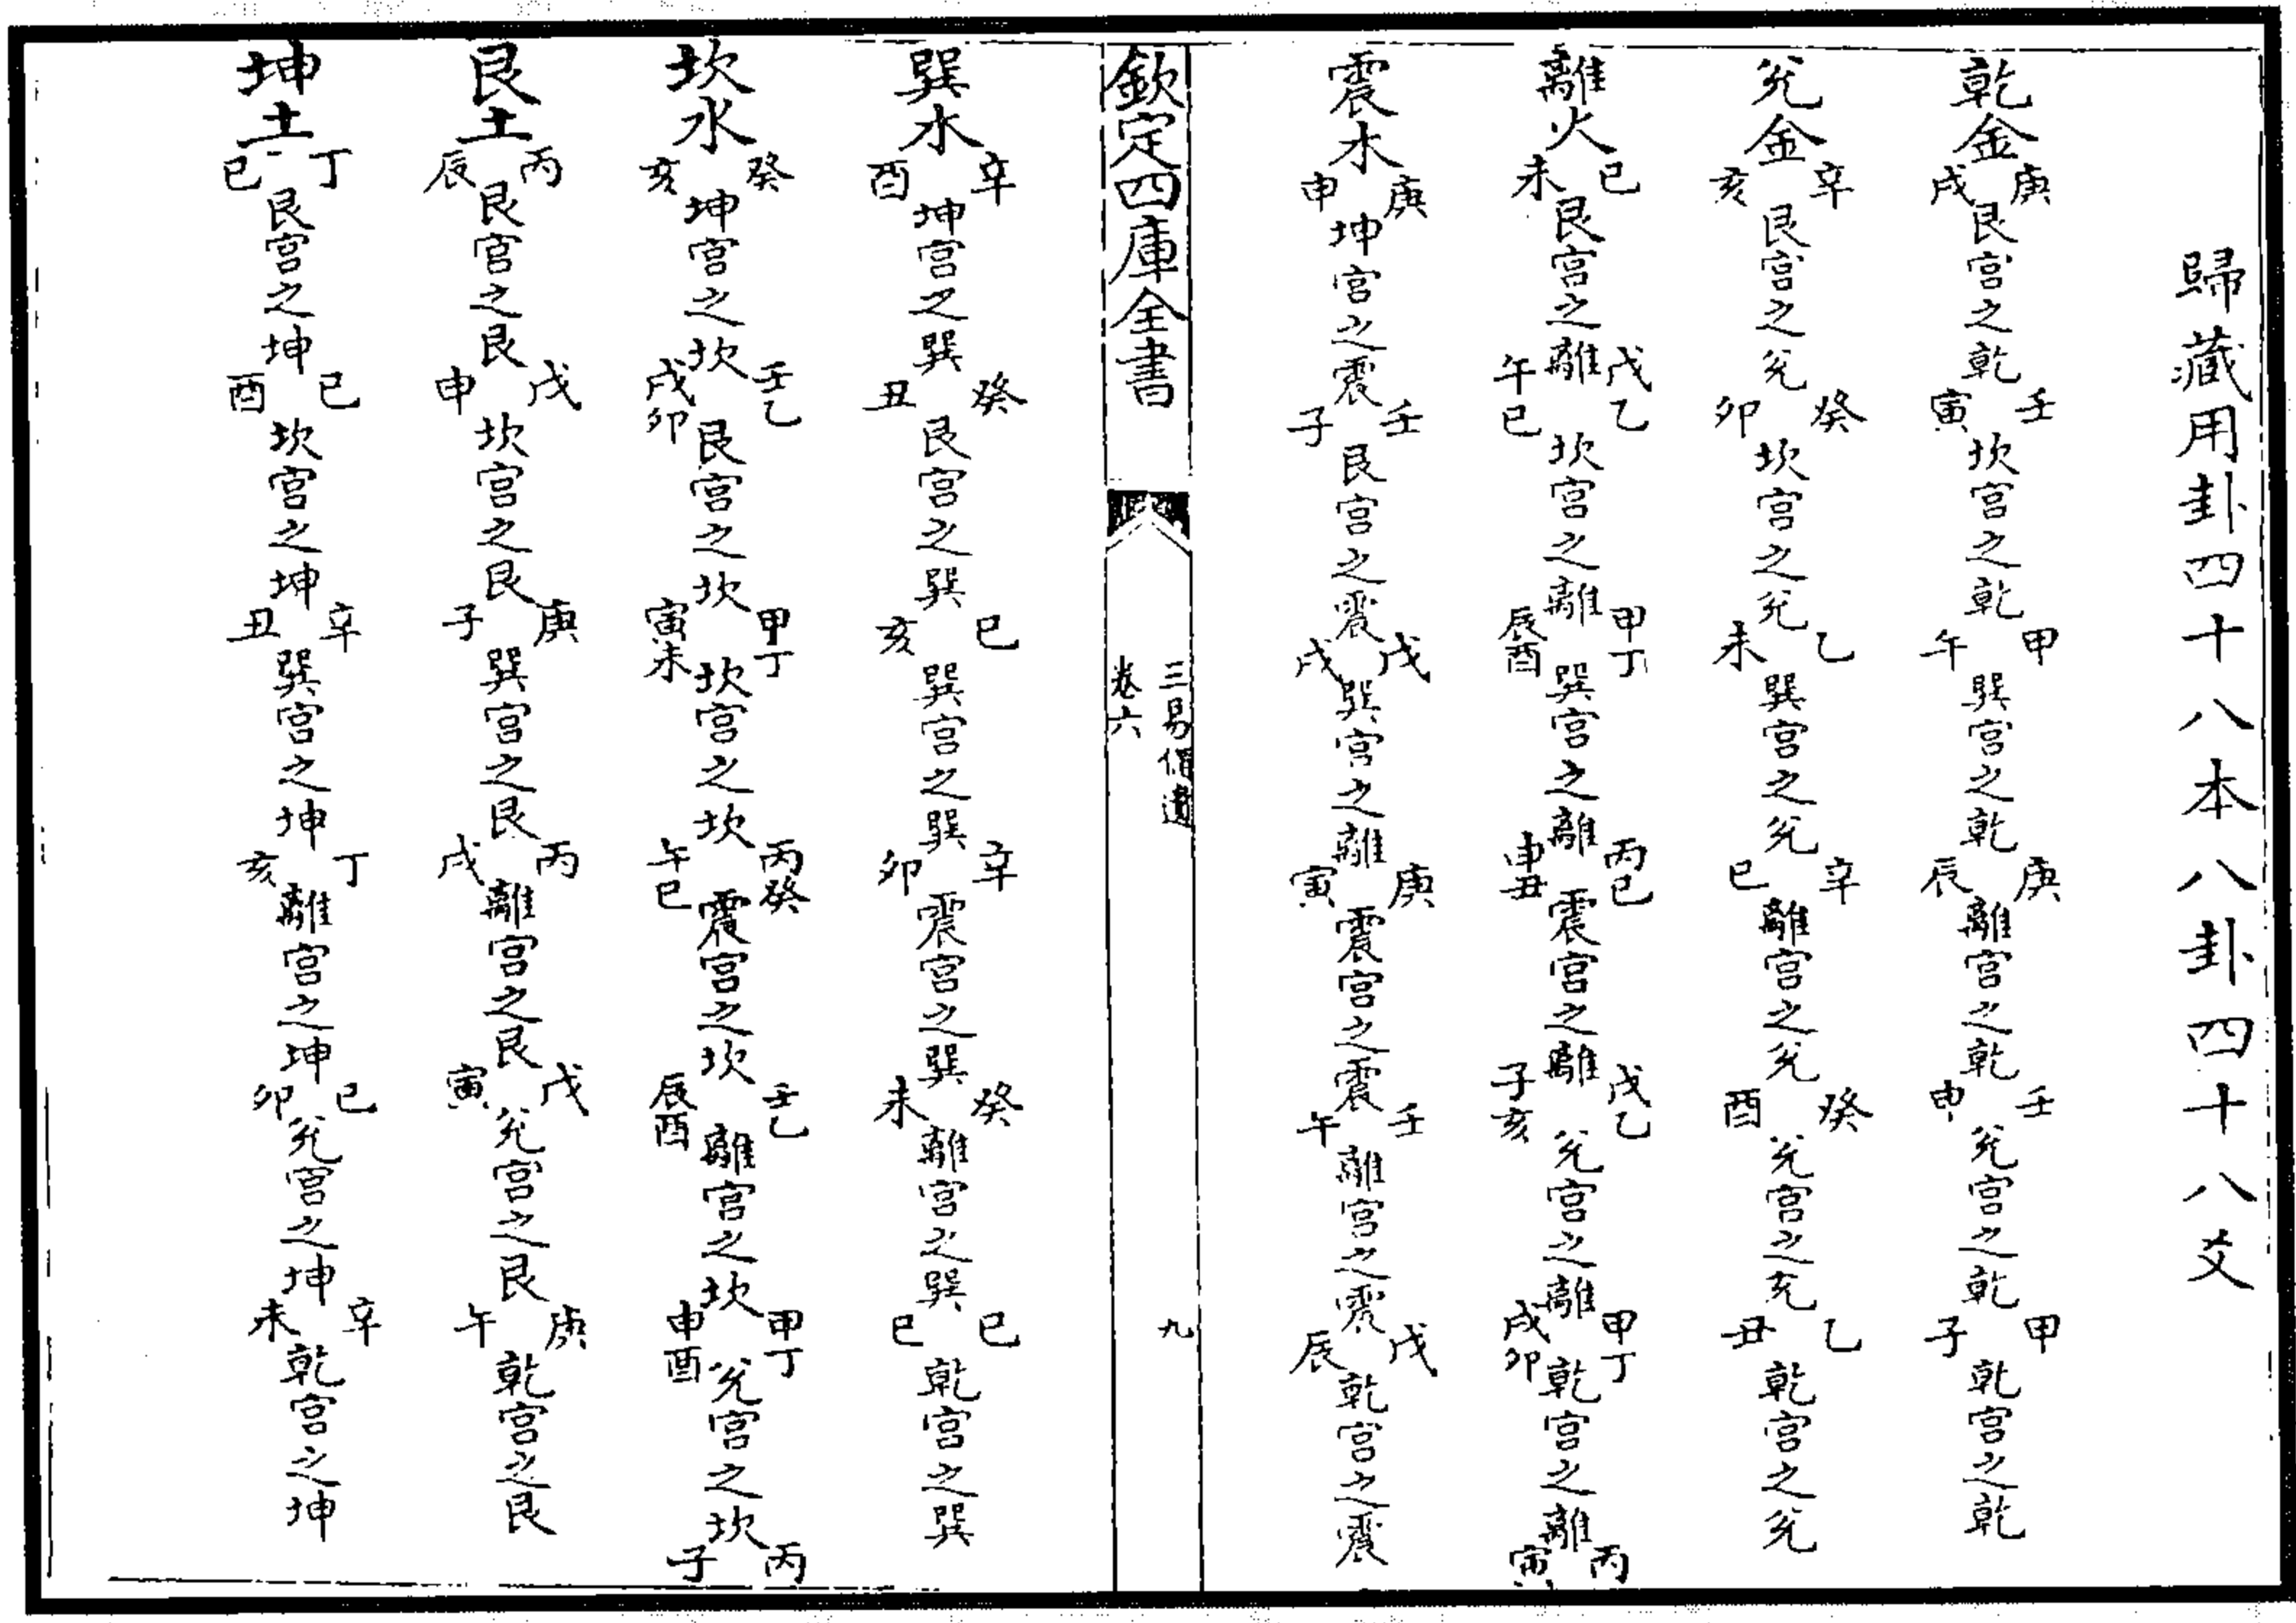 歸藏用卦四十八本八卦四十八爻
乾金庚戌艮宫之乾壬寅坎宫之乾甲午巽宫之乾庚辰離宫之乾壬申兊宫之乾甲子乾宫之乾
兊金辛亥艮宫之兊癸卯坎宫之兊乙未巽宫之兊辛巳離宫之兊癸酉兊宫之兊乙丑乾宫之兊
離火己未艮宫之離戊乙午巳坎宫之離甲丁辰酉巽宫之離丙己申丑震宫之離戊乙子亥兊宫之離甲丁戌卯乾宫之離丙寅
震木庚申坤宫之震壬子艮宫之震戊戌巽宫之離庚寅震宫之震壬午離宫之震戊辰乾宫之震
欽定四庫全書
三易備遺
卷六
九
巽木辛酉坤宫之巽癸丑艮宫之巽己亥巽宫之巽辛卯震宫之巽癸未離宫之巽己巳乾宫之巽
坎水癸亥坤宫之坎壬乙戌卯艮宫之坎甲丁寅未坎宫之坎丙癸午巳震宫之坎壬乙辰酉離宫之坎甲丁申酉兊宫之坎丙子
艮土丙辰艮宫之艮戊申坎宫之艮庚子巽宫之艮丙戌離宫之艮戊寅兊宫之艮庚午乾宫之艮
坤土丁巳艮宫之坤己酉坎宫之坤辛丑巽宫之坤丁亥離宫之坤己卯兊宫之坤辛未乾宫之坤